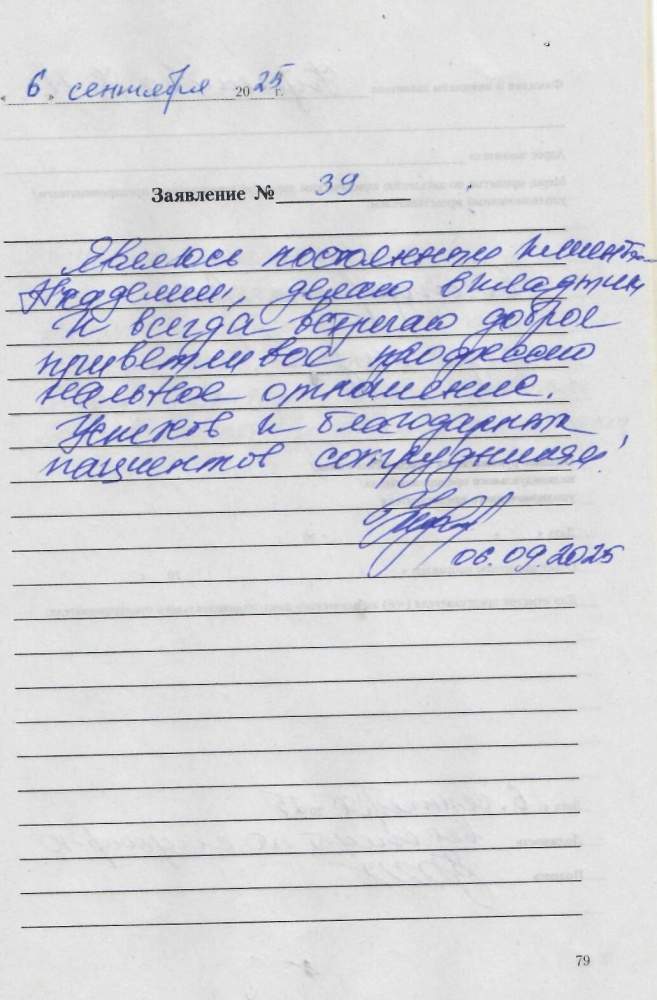 « 6 » сентября 2025 г.
Заявление № 39
Являюсь постоянным клиентом
Академии, делаю вкладыши
И всегда встречаю доброе
приветливое профессио
нальное отношение.
Успехов и благодарных
пациентов сотрудникам!
06.09.2025
79